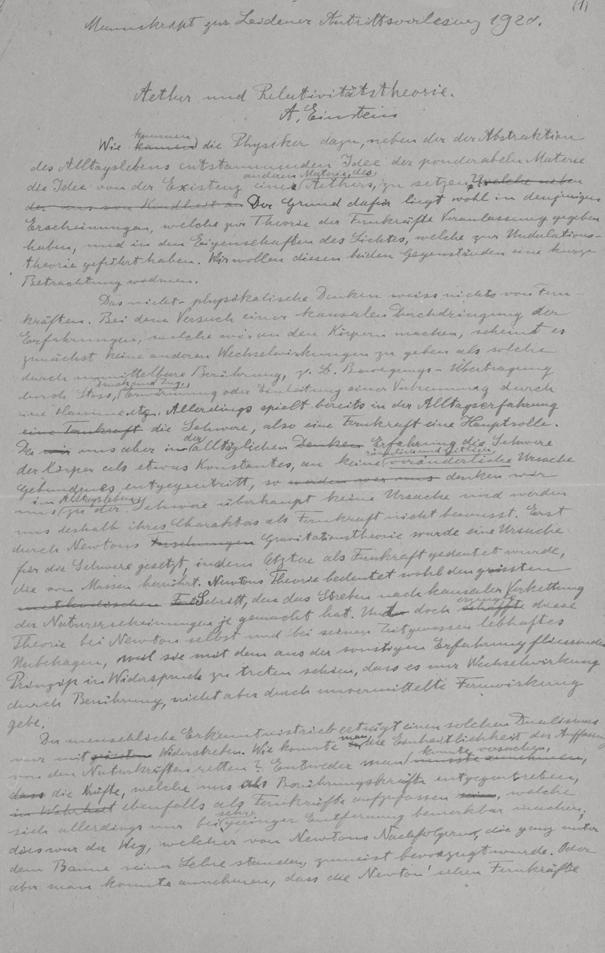 (1)
Manuskript zur Leidener Antrittsvorlesung 1920.
Aether und Relativitätstheorie.
A. Einstein
Wie kommen die Physiker dazu, neben der der Abstraktion
des Alltagslebens entstammenden Idee der ponderabeln Materie
die Idee von der Existenz einer anderen Materie, des Aethers, zu setzen?
Der Grund dafür liegt wohl in denjenigen
Erscheinungen, welche zur Theorie der Fernkräfte Veranlassung gegeben
haben, und in den Eigenschaften des Lichtes, welche zur Undulations-
theorie geführt haben. Wir wollen diesen beiden Gegenständen eine kurze
Betrachtung widmen.
Das nicht-physikalische Denken weiss nichts von Fern-
kräften. Bei dem Versuch einer kausalen Durchdringung der
Erfahrungen, welche wir an den Körpern machen, scheint es
zunächst keine anderen Wechselwirkungen zu geben als solche
durch unmittelbare Berührung, z. B. Bewegungs-Übertragung
durch Stoss, Druck und Zug, Erwärmung oder Einleitung einer Verbrennung durch
eine Flamme etc. Allerdings spielt bereits in der Alltagserfahrung
die Schwere, also eine Fernkraft eine Hauptrolle.
Da uns aber in der alltäglichen Erfahrung die Schwere
der Körper als etwas Konstantes, an keine veränderliche Ursache
Gebundenes entgegentritt, so denken wir
uns im Alltagsleben zu der Schwere überhaupt keine Ursache und werden
uns deshalb ihres Charakters als Fernkraft nicht bewusst. Erst
durch Newtons Gravitationstheorie wurde eine Ursache
für die Schwere gesetzt, indem letztere als Fernkraft gedeutet wurde,
die von Massen herrührt. Newtons Theorie bedeutet wohl den grössten
Schritt, den das Streben nach kausaler Verkettung
der Naturerscheinungen je gemacht hat. Und doch erzeugte diese
Theorie bei Newton selbst und bei seinen Zeitgenossen lebhaftes
Unbehagen, weil sie mit dem aus der sonstigen Erfahrung fliessenden
Prinzip in Widerspruch zu treten schien, dass es nur Wechselwirkung
durch Berührung, nicht aber durch unvermittelte Fernwirkung
gebe.
Der menschliche Erkenntnistrieb erträgt einen solchen Dualismus
nur mit Widerstreben. Wie konnte man die Einheitlichkeit der Auffassung
von den Naturkräften retten? Entweder man konnte versuchen,
die Kräfte, welche uns als Berührungskräfte entgegentreten,
ebenfalls als Fernkräfte aufzufassen, welche
sich allerdings nur bei sehr geringer Entfernung bemerkbar machen;
dies war der Weg, welcher von Newtons Nachfolgern, die ganz unter
dem Banne seiner Lehre standen, zumeist bevorzugt wurde. Oder
aber man konnte annehmen, dass die Newton'schen Fernkräfte